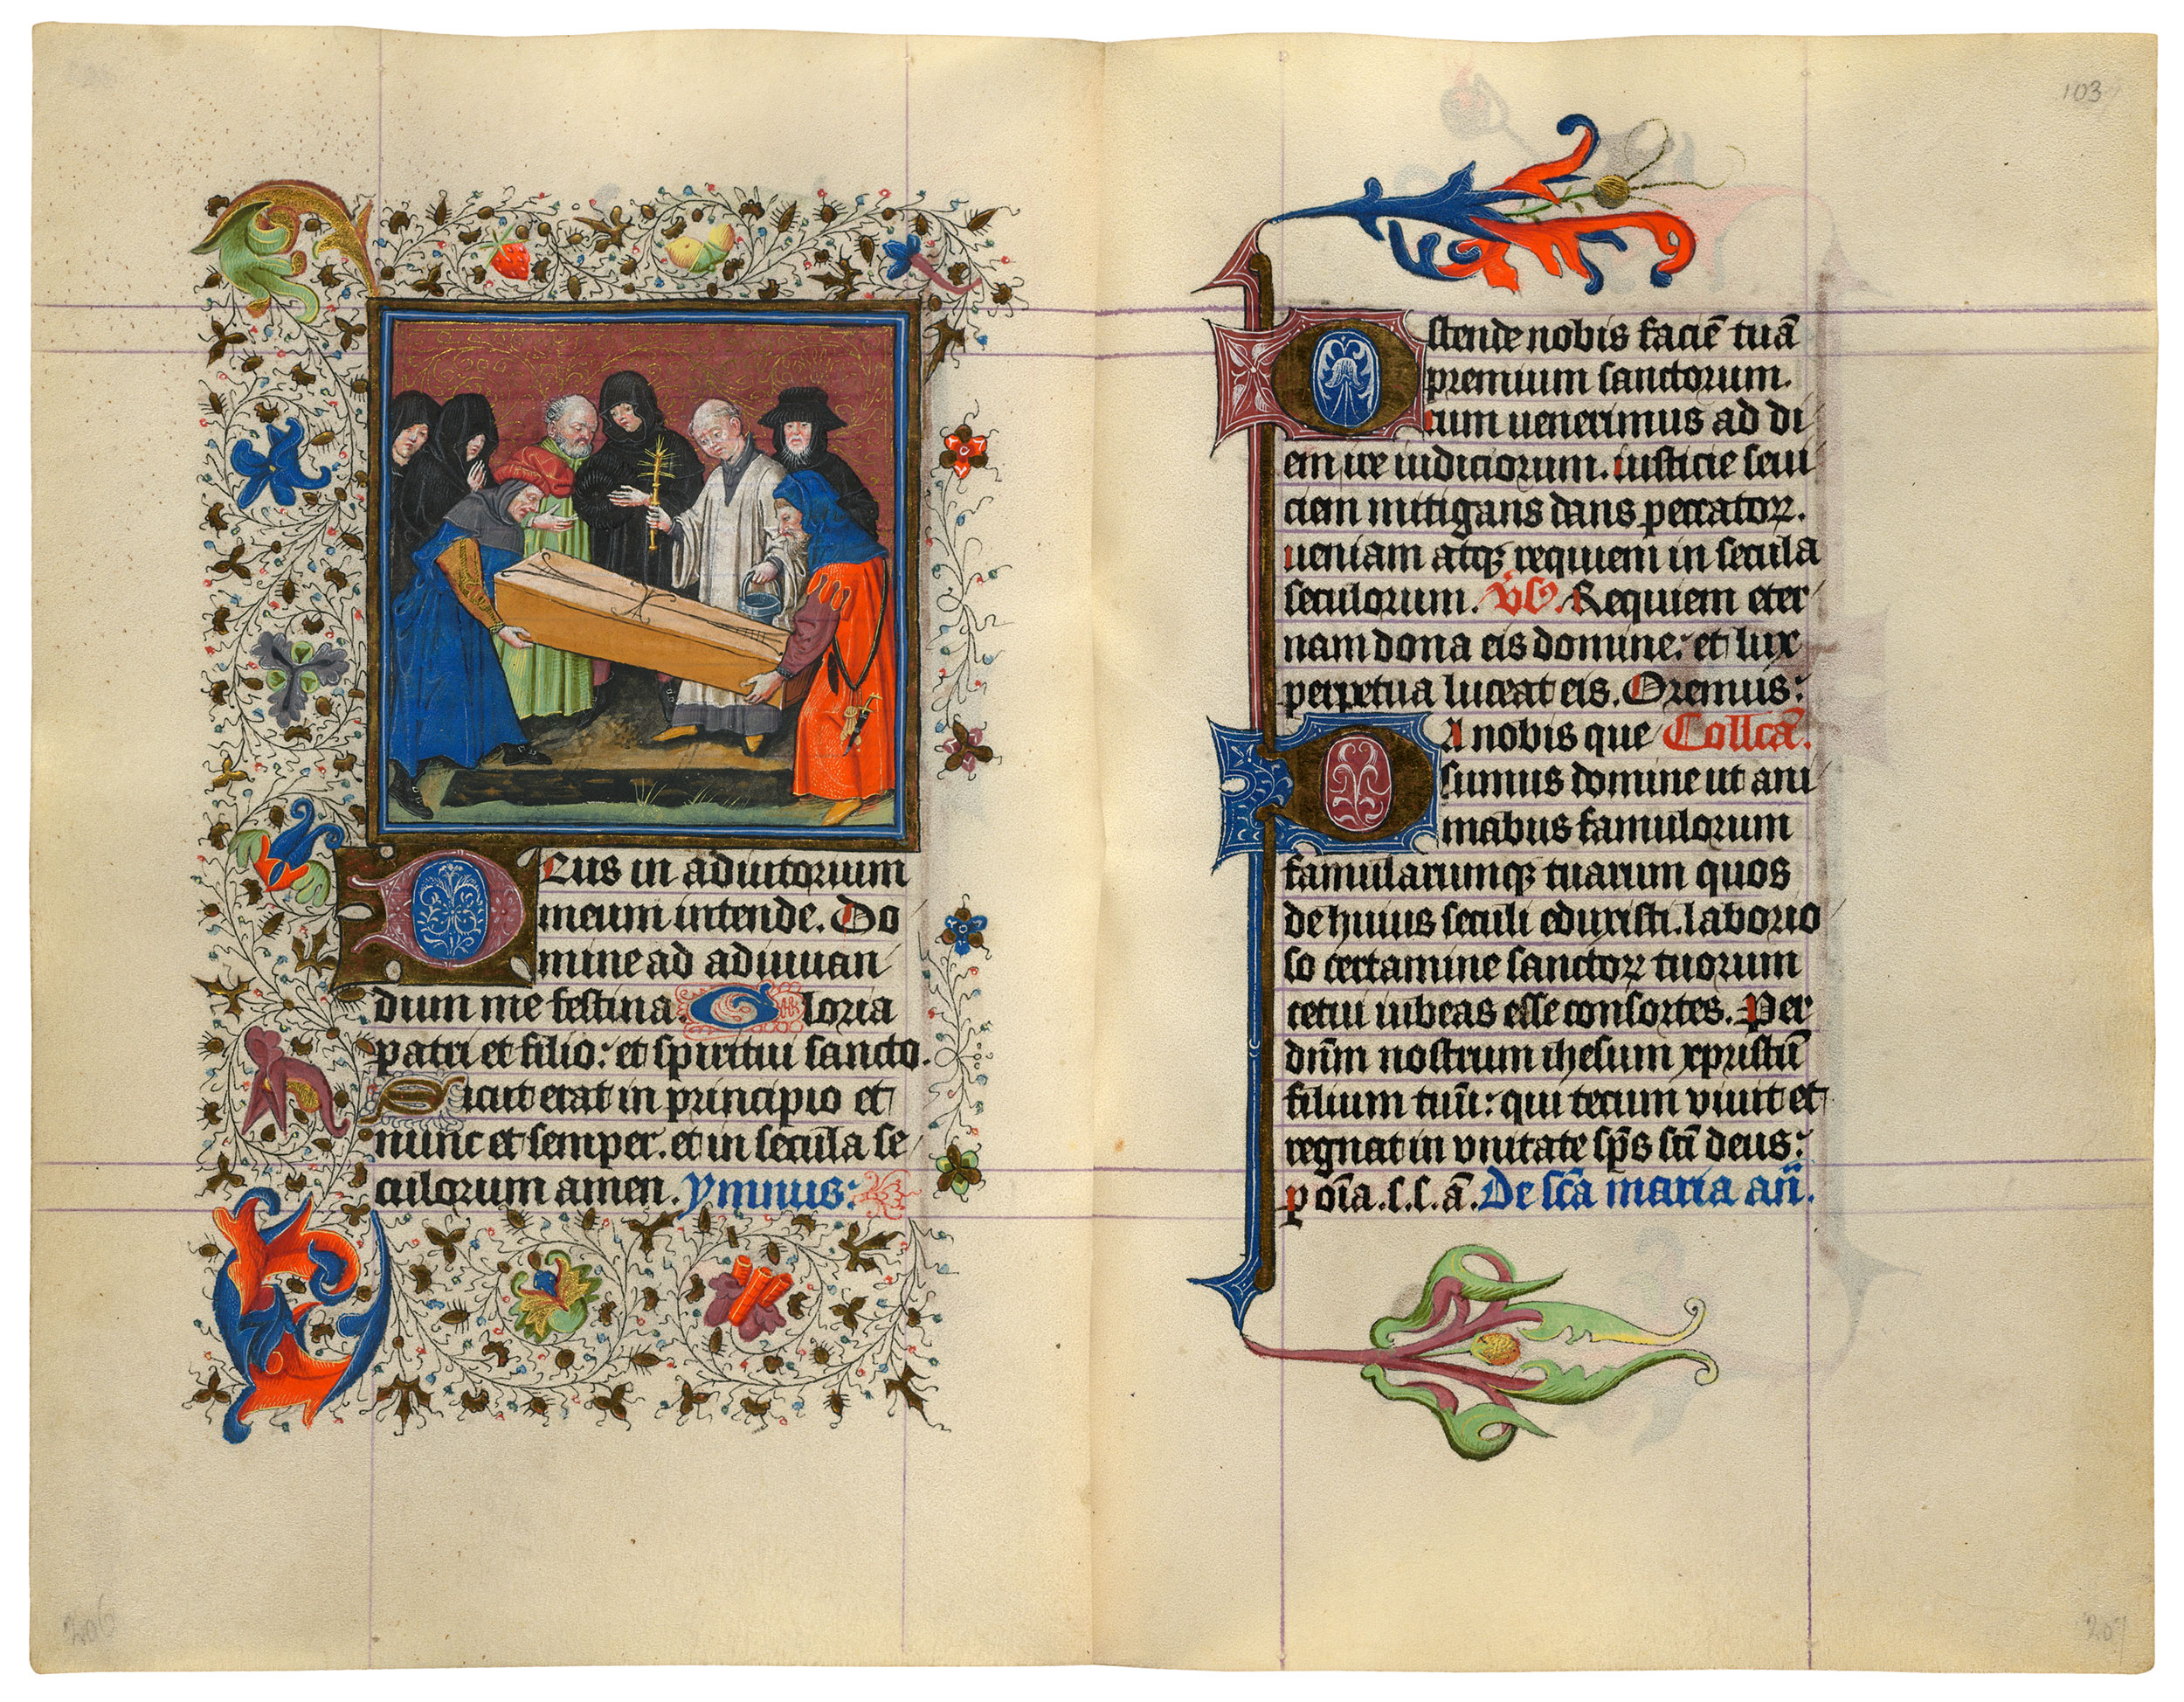 Deus in adiutorium
meum intende. Do
mine ad adiuuan
dum me festina. Gloria
patri et filio: et spiritui sancto.
Sicut erat in principio et
nunc et semper. et in secula se
culorum amen. ymnus:
206
103
Ostende nobis faciē tuā
premium sanctorum.
cum uenerimus ad di
em ire iudiciorum. iusticie seui
ciem mitigans dans peccatoꝝ.
ueniam atqꝫ requiem in secula
seculorum. Vs. Requiem eter
nam dona eis domine: et lux
perpetua luceat eis. Oremus:
Da nobis que Collcā.
sumus domine ut ani
mabus famulorum
famularumqꝫ tuarum quos
de huius seculi eduxisti. laborio
so certamine sanctoꝝ tuorum
cetui iubeas esse consortes. Per
dn̄m nostrum ihesum xpristū
filium tuū: qui tecum viuit et
regnat in vnitate sp̄s sc̄i deus:
p oīa. s. s. ā. De sc̄a maria an̄.
207